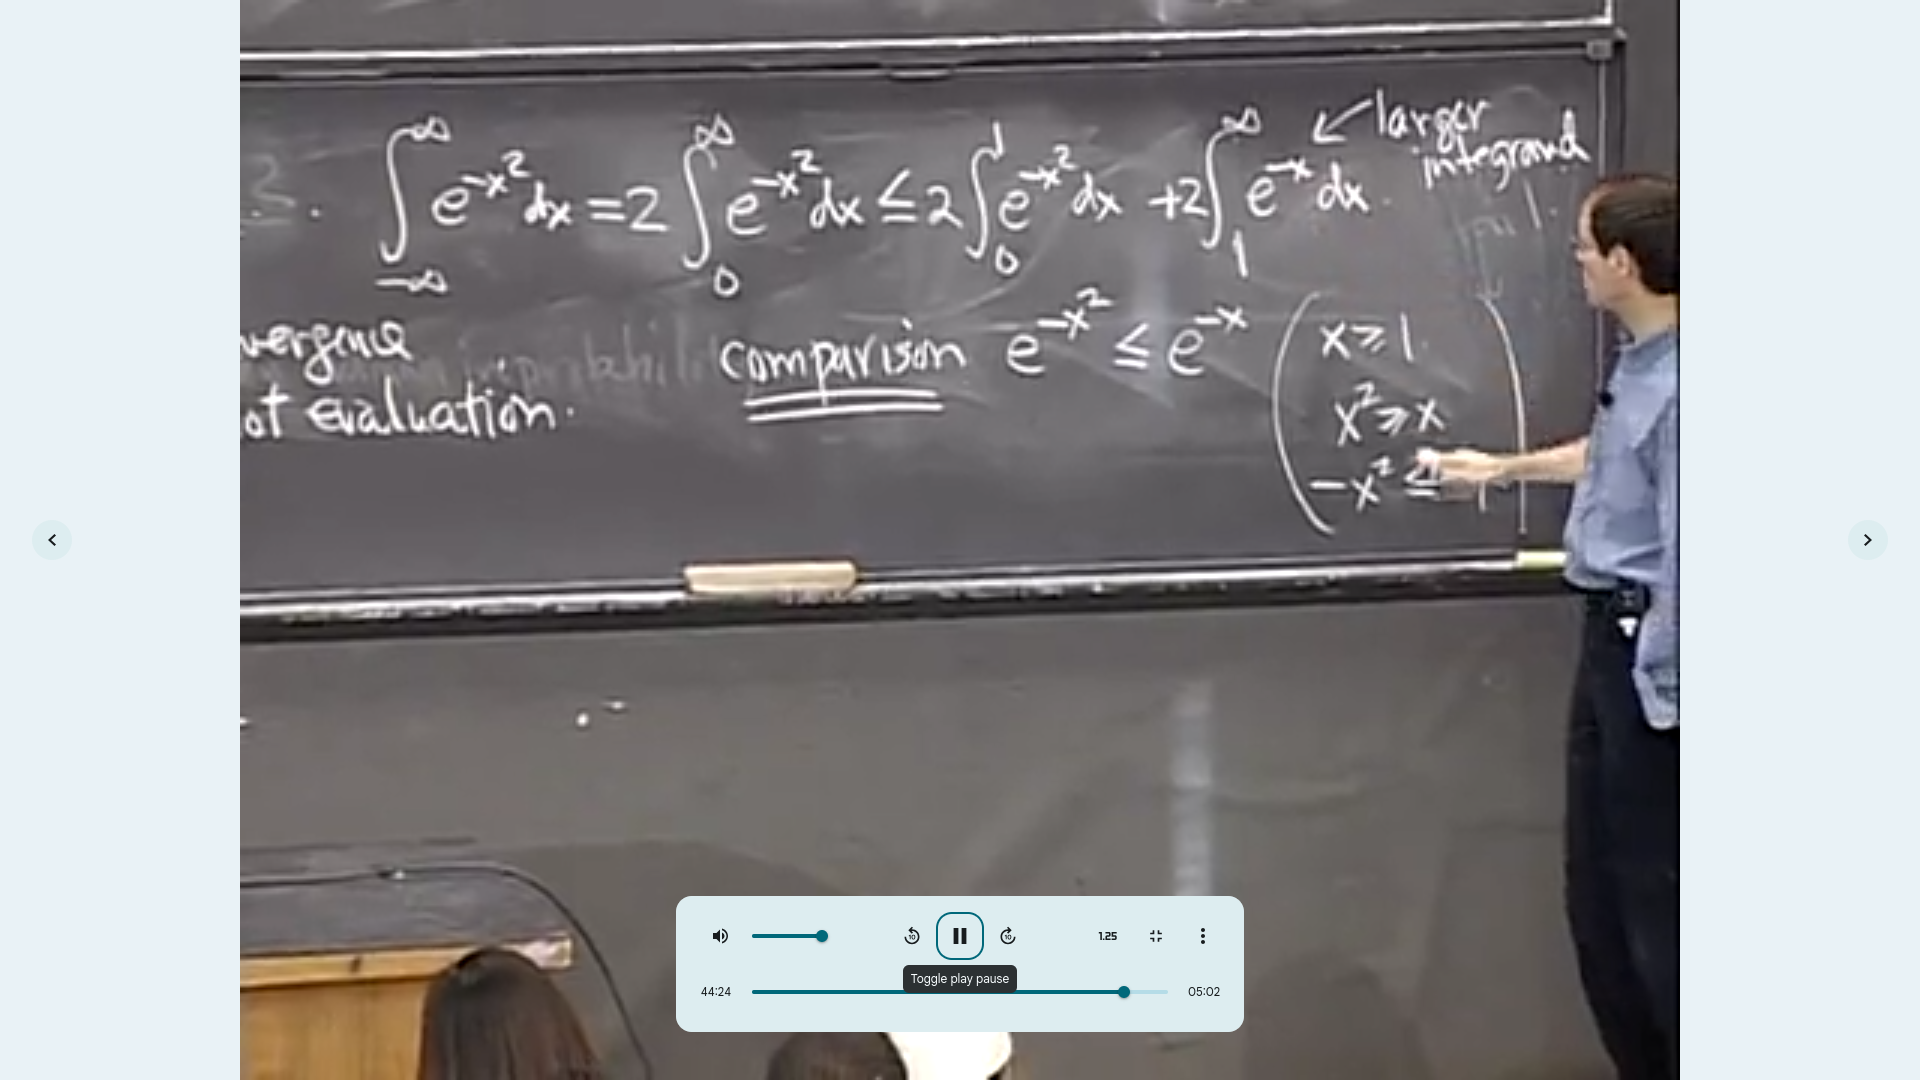 ∫_{-∞}^{∞} e^{-x²} dx = 2 ∫_0^∞ e^{-x²} dx ≤ 2 ∫_0^1 e^{-x²} dx + 2 ∫_1^∞ e^{-x} dx ↙ larger
integrand
vergence
ot evaluation.
comparison e^{-x²} ≤ e^{-x}
x ≥ 1
x² ≥ x
-x² ≤
1.25
Toggle play pause
44:24
05:02